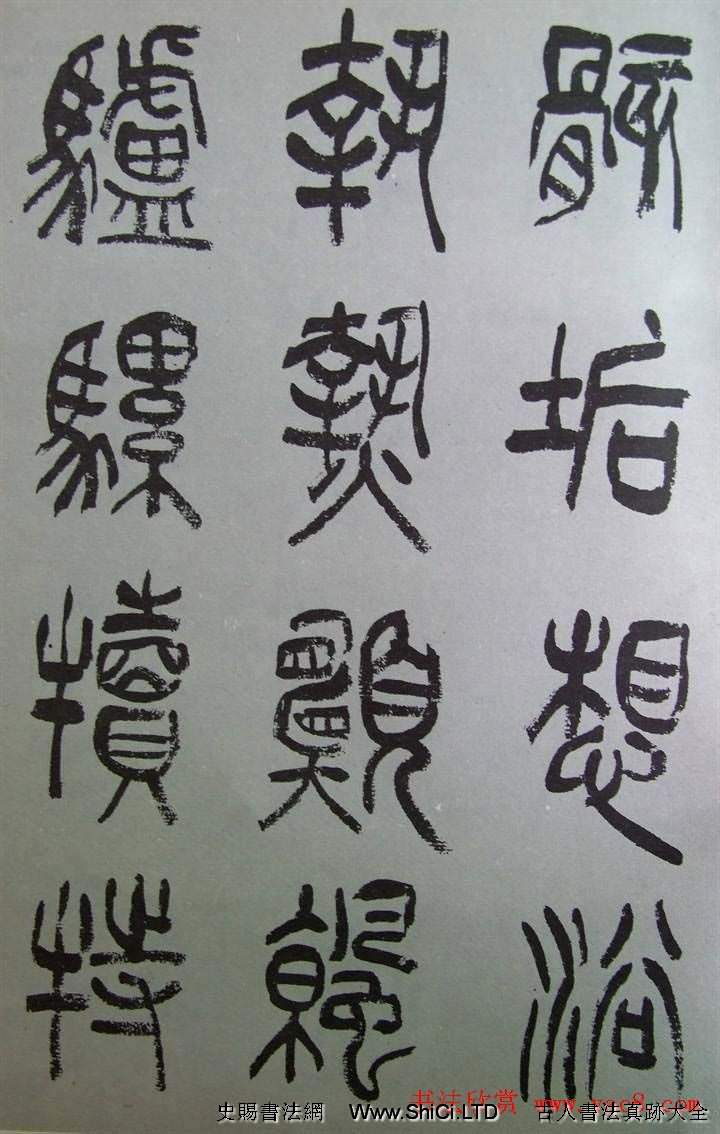 骸垢想浴
執熱願涼
驢騾犢特
书法欣赏 www.yac8.com
史賜書法網 Www.ShiCi.LTD 古人書法真跡大全